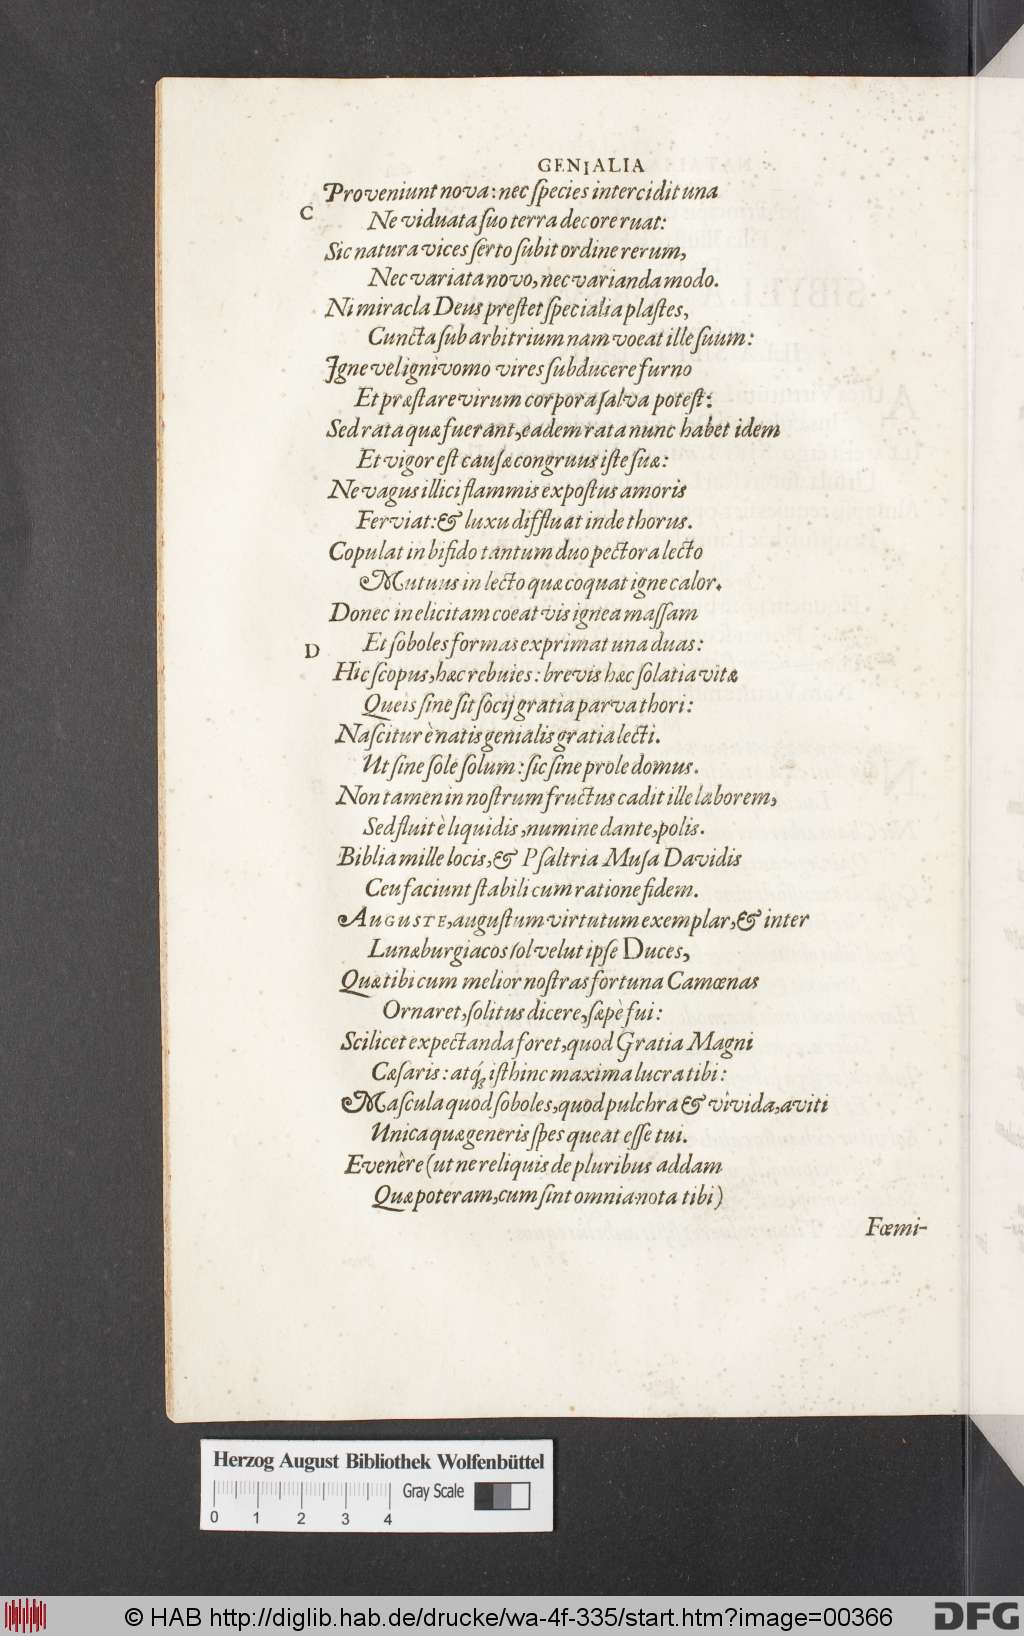 GENIALIA
Proveniunt nova: nec ſpecies intercidit una
C
Ne viduata ſuo terra decore ruat:
Sic natura vices ſerto ſubit ordine rerum,
Nec variata novo, nec varianda modo.
Ni miracla Deus preſtet ſpecialia plaſtes,
Cuncta ſub arbitrium nam voeat ille ſuum:
Igne vel ignivomo vires ſubducere furno
Et præſtare virum corpora ſalva poteſt:
Sed rata quæ fuerant, eadem rata nunc habet idem
Et vigor eſt cauſæ congruus iſte ſuæ:
Ne vagus illici flammis expoſtus amoris
Ferviat: & luxu diffluat inde thorus.
Copulat in bifido tantum duo pectora lecto
Mutuus in lecto quæ coquat igne calor.
Donec in elicitam coeat vis ignea maſſam
Et ſoboles formas exprimat una duas:
D
Hic ſcopus, hæc rebuies: brevis hæc ſolatia vitæ
Queis ſine ſit ſocij gratia parva thori:
Naſcitur è natis genialis gratia lecti.
Ut ſine ſole ſolum: ſic ſine prole domus.
Non tamen in noſtrum fructus cadit ille laborem,
Sed fluit è liquidis, numine dante, polis.
Biblia mille locis, & Pſaltria Muſa Davidis
Ceu faciunt ſtabili cum ratione fidem.
AUGUSTE, auguſtum virtutum exemplar, & inter
Lunæburgiacos ſol velut ipſe Duces,
Quæ tibi cum melior noſtras fortuna Camœnas
Ornaret, ſolitus dicere, ſæpè fui:
Scilicet expectanda foret, quod Gratia Magni
Cæſaris: atq́; iſthinc maxima lucra tibi:
Maſcula quod ſoboles, quod pulchra & vivida, aviti
Unica quæ generis ſpes queat eſſe tui.
Evenère (ut ne reliquis de pluribus addam
Quæ poteram, cum ſint omnia nota tibi)
Fœmi-
Herzog August Bibliothek Wolfenbüttel
Gray Scale
0 1 2 3 4
© HAB http://diglib.hab.de/drucke/wa-4f-335/start.htm?image=00366
DFG